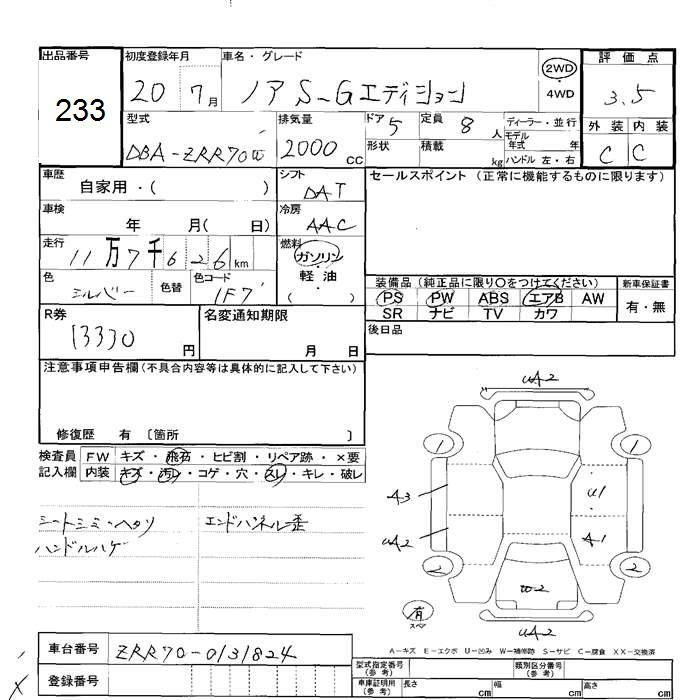 出品番号
233
初度登録年月
20 7月
車名・グレード
ノア S-Gエディション
2WD
・
4WD
評価点
3.5
外装 内装
C C
型式
DBA-ZRR70W
排気量
2000 cc
ドア 5
形状
定員 8 人
積載 kg
ディーラー・並行
モデル
年式 年
ハンドル 左・右
車歴
自家用・( )
シフト
DAT
車検
年 月( 日)
冷房
AAC
走行
11万7千626km
燃料
ガソリン
・
軽油
( )
色
シルバー
色替
色コード
1F7
セールスポイント (正常に機能するものに限ります)
装備品 (純正品に限り○をつけてください)
PS PW ABS エアB AW
SR ナビ TV カワ
新車保証書
有・無
後日品
R券
13330 円
名変通知期限
月 日
注意事項申告欄 (不具合内容等は具体的に記入して下さい)
修復歴 有 〔箇所 〕
検査員
記入欄
FW キズ・飛石・ヒビ割・リペア跡・×要
内装 キズ・汚レ・コゲ・穴・スレ・キレ・破レ
シートシミ・ヘタリ
ハンドルハゲ
エンドパネル歪
UA2
1 1
A3 U1
UA2 A1
2 2
W2
有
スペア
UA2
A-キズ E-エクボ U-凹み W-補修跡 S-サビ C-腐食 XX-交換済
車台番号
ZRR70-0131824
登録番号
型式指定番号
(参考)
類別区分番号
(参考)
車庫証明用
(参考)
長さ cm 幅 cm 高さ cm